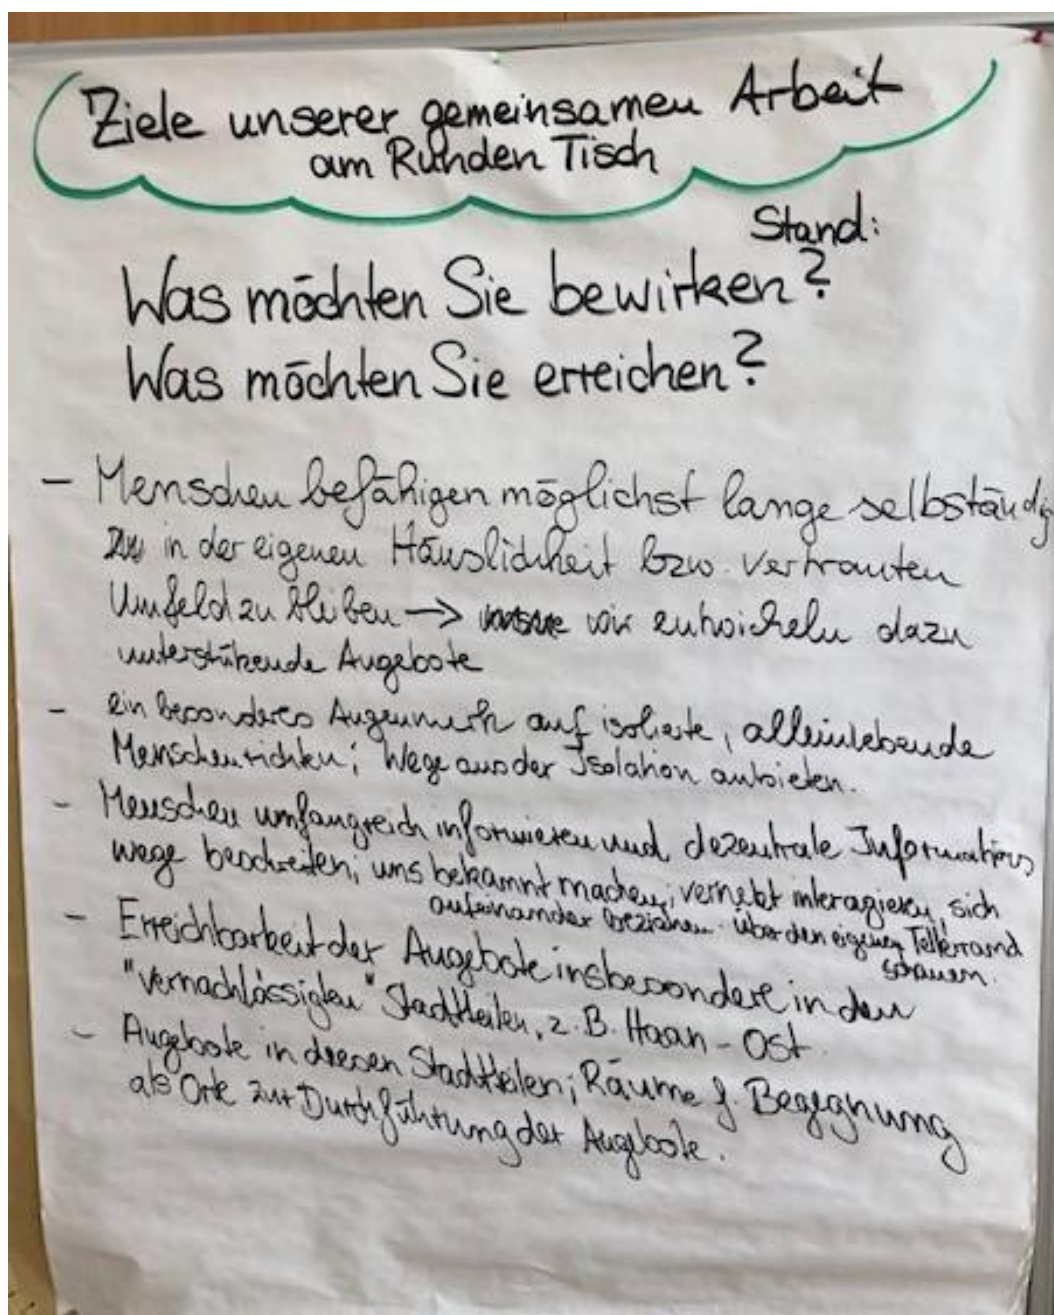 Ziele unserer gemeinsamen Arbeit
am Runden Tisch
Stand:
Was möchten Sie bewirken?
Was möchten Sie erreichen?
- Menschen befähigen möglichst lange selbständig
in der eigenen Häuslichkeit bzw. vertrauten
Umfeld zu bleiben → wir entwickeln dazu
unterstützende Angebote
- ein besonderes Augenmerk auf isolierte, alleinlebende
Menschen richten; Wege aus der Isolation anbieten.
- Menschen umfangreich informieren und dezentrale Informations
wege beschreiten; uns bekannt machen; vernetzt interagieren, sich
aufeinander beziehen. über den eigenen Tellerrand
schauen.
- Erreichbarkeit der Angebote insbesondere in den
"vernachlässigten" Stadtteilen, z.B. Haan-Ost
- Angebote in diesen Stadtteilen; Räume f. Begegnung
als Orte zur Durchführung der Angebote.